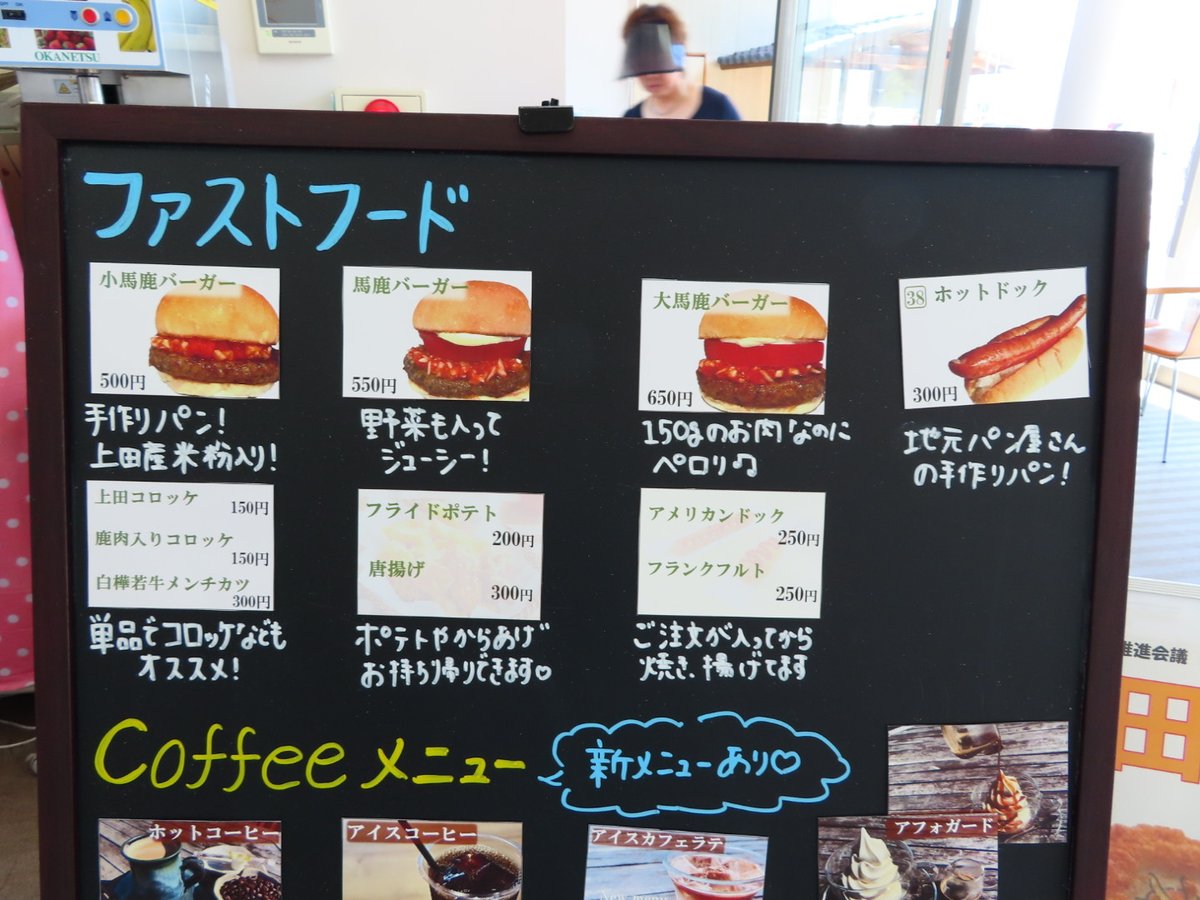 OKANETSU
ファストフード
小馬鹿バーガー
500円
手作りパン!
上田産米粉入り!
馬鹿バーガー
550円
野菜も入って
ジューシー!
大馬鹿バーガー
650円
150gのお肉なのに
ペロリ♫
38 ホットドック
300円
地元パン屋さん
の手作りパン!
上田コロッケ
150円
鹿肉入りコロッケ
150円
白樺若牛メンチカツ
300円
単品でコロッケなども
オススメ!
フライドポテト
200円
唐揚げ
300円
ポテトやからあげ
お持ち帰りできます♡
アメリカンドック
250円
フランクフルト
250円
ご注文が入ってから
焼き、揚げてます
Coffee メニュー
新メニューあり♡
ホットコーヒー
アイスコーヒー
アイスカフェラテ
New menu
アフォガード
推進会議